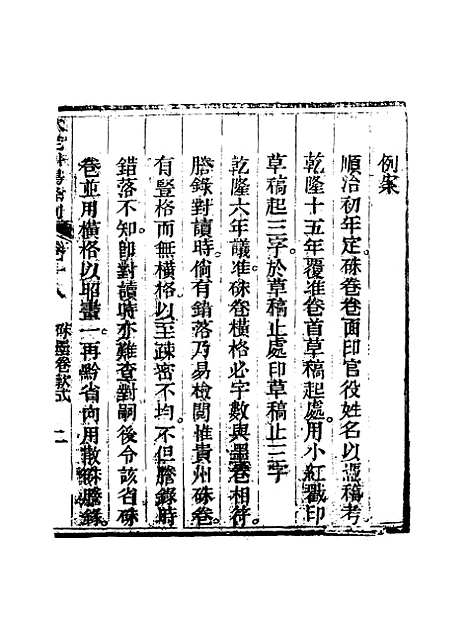 例案
順治初年定硃卷卷面印官役姓名以憑稽考
乾隆十五年覆准卷首草稿起處。用小紅戳印
草稿起三字於草稿止處印草稿止三字
乾隆六年議准硃卷橫格必字數與墨卷相符。
謄錄對讀時。倘有錯落乃易檢閱惟貴州硃卷。
有豎格而無橫格以至疎密不均。不但謄錄時
錯落不知。卽對讀時亦難查對嗣後令該省硃
卷並用橫格以昭畫一再黔省向用散硃謄錄。
硃墨卷款式
二